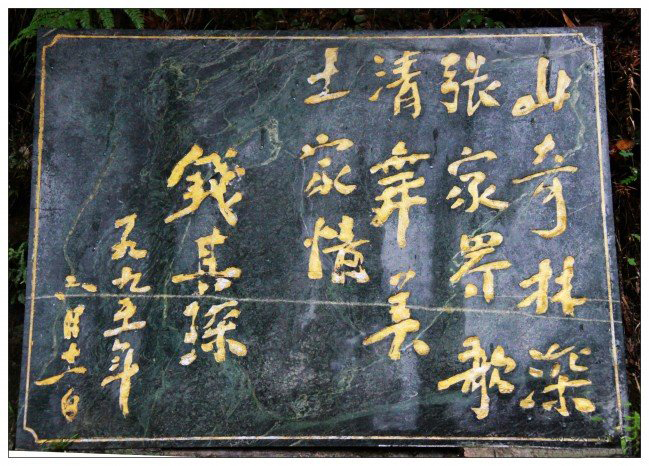 山奇林深
张家界歌
清舞美
土家情
錢其琛
一九九五年
六月十一日